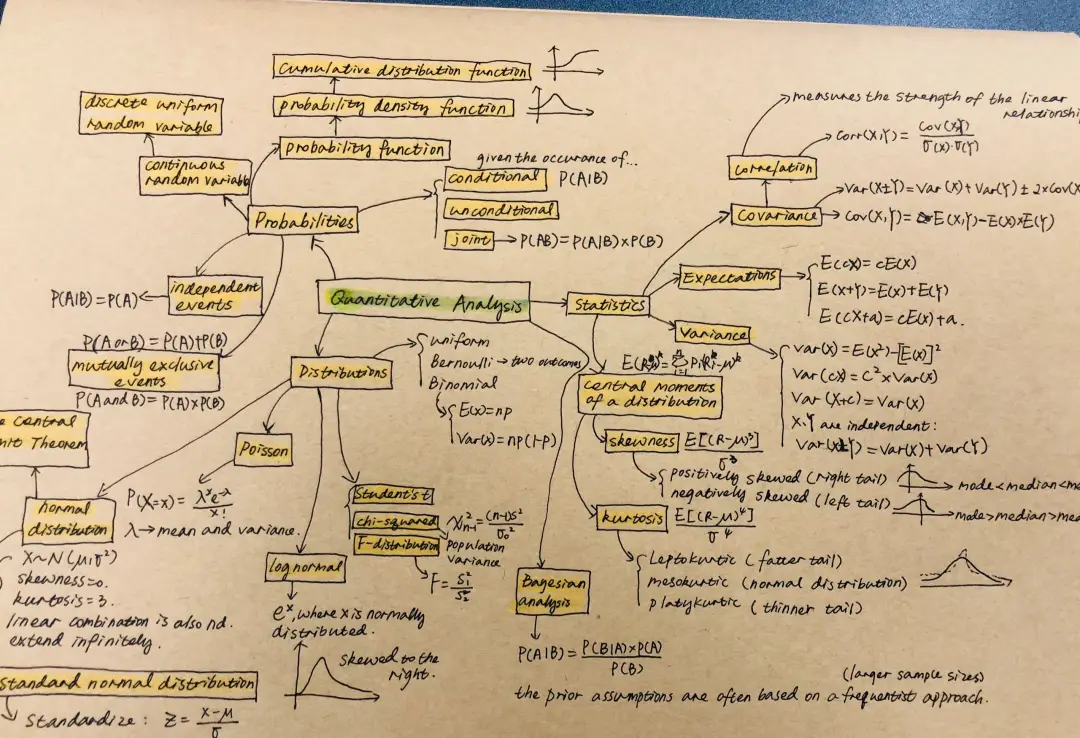 cumulative distribution function
probability density function
probability function
discrete uniform
random variable
continuous
random variable
Probabilities
given the occurance of...
conditional P(A|B)
unconditional
joint → P(AB) = P(A|B)×P(B)
independent
events
P(A|B) = P(A)
P(A or B) = P(A)+P(B)
mutually exclusive
events
P(A and B) = P(A)×P(B)
Quantitative Analysis
Distributions
uniform
Bernoulli → two outcomes
Binomial
E(x) = np
Var(x) = np(1-p)
Poisson
P(X=x) = λ^x e^-λ / x!
λ → mean and variance.
Central
Theorem
normal
distribution
X~N(μ,σ²)
skewness=0.
kurtosis=3.
linear combination is also nd.
extend infinitely.
standard normal distribution
standardize: Z = x-μ / σ
lognormal
e^x, where x is normally
distributed.
skewed to the
right.
Student's t
chi-squared χ²n-1 = (n-1)s² / σ0²
F-distribution
population
variance
F = S1² / S2²
Statistics
measures the strength of the linear
relationship
Corr(X,Y) = Cov(X,Y) / σ(X)·σ(Y)
correlation
Var(X±Y) = Var(X)+Var(Y) ± 2×Cov(X
Covariance → Cov(X,Y) = E(X,Y)-E(X)×E(Y)
Expectations
E(cX) = cE(X)
E(X+Y) = E(X)+E(Y)
E(cX+a) = cE(X)+a.
Variance
Var(X) = E(X²)-[E(X)]²
Var(cX) = C²×Var(X)
Var(X+c) = Var(X)
X.Y are independent:
Var(X±Y) = Var(X)+Var(Y)
central moments
of a distribution
skewness E[(R-μ)³] / σ³
positively skewed (right tail) → mode<median<me
negatively skewed (left tail) → mode>median>mea
kurtosis E[(R-μ)⁴] / σ⁴
Leptokurtic (fatter tail)
mesokurtic (normal distribution)
platykurtic (thinner tail)
Bayesian
analysis
P(A|B) = P(B|A)×P(A) / P(B)
(larger sample sizes)
the prior assumptions are often based on a frequentist approach.